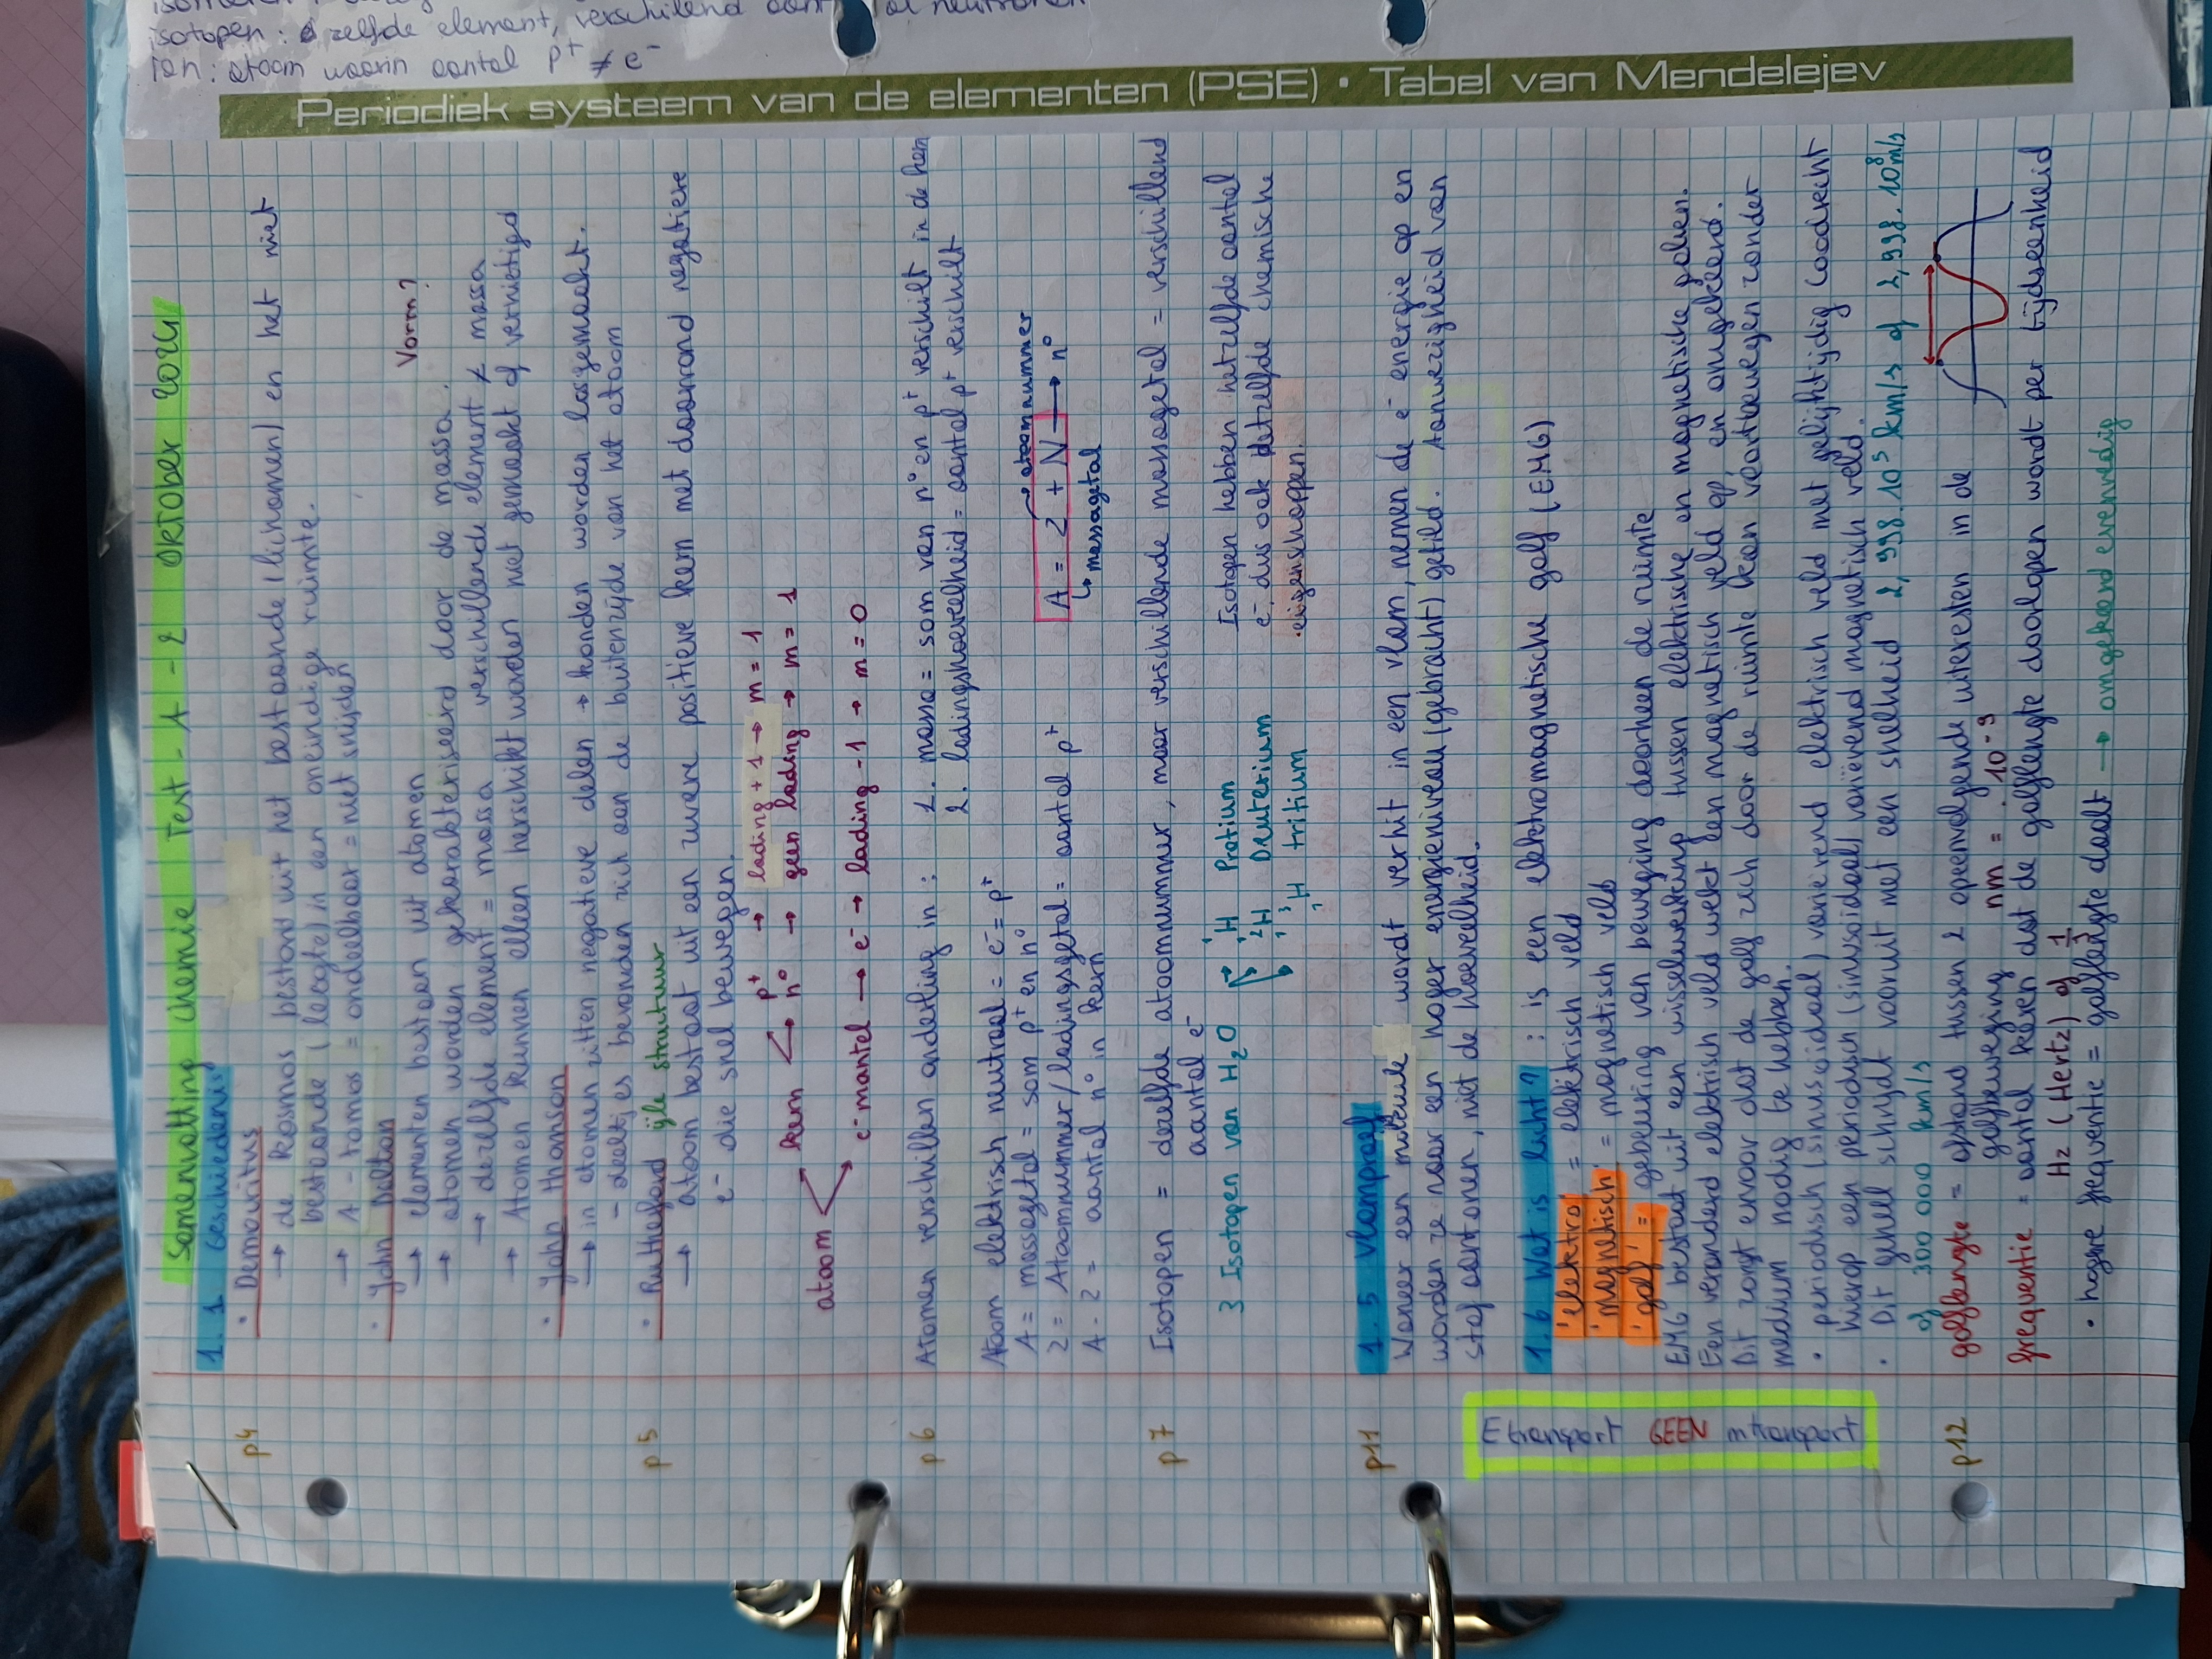 Samenvatting chemie Test-1-2 Oktober 2024
1.1 Geschiedenis
p4
• Democritus
→ de kosmos bestond uit het bestaande (lichamen) en het niet
bestaande (leegte) in een oneindige ruimte.
→ A-tomos = ondeelbaar = niet snijden
• John Dalton
→ elementen bestaan uit atomen
Vorm?
→ atomen worden gekarakteriseerd door de massa.
→ dezelfde element = massa verschillende element ≠ massa
→ Atomen kunnen alleen herschikt worden niet gemaakt of vernietigd
• John thomson
→ in atomen zitten negatieve delen → konden worden losgemaakt.
- deeltjes bevonden zich aan de buitenzijde van het atoom
p5
• Rutherford ijle structuur
→ atoom bestaat uit een zware positieve kern met daarrond negatieve
e⁻ die snel bewegen.
p⁺ → lading +1 → m = 1
kern
n⁰ → geen lading → m = 1
atoom
e⁻mantel → e⁻ → lading -1 → m = 0
p6
Atomen verschillen onderling in : 1. massa = som van n⁰ en p⁺ verschilt in de kern
2. ladingshoeveelheid = aantal p⁺ verschilt
Atoom elektrisch neutraal = e⁻ = p⁺
A = massagetal = som p⁺ en n⁰
→ atoomnummer
Z = Atoomnummer/ladingsgetal = aantal p⁺
A = Z + N → n⁰
A - Z = aantal n⁰ in kern
↳ massagetal
p7
Isotopen = dezelfde atoomnummer, maar verschillende massagetal = verschillend
aantal e⁻
3 Isotopen van H₂O → ¹₁H Protium
Isotopen hebben hetzelfde aantal
²₁H Deuterium
e⁻, dus ook hetzelfde chemische
³₁H tritium
eigenschappen.
p11
1.5 Vlamproef
Waneer een molecule wordt verhit in een vlam, nemen de e⁻ energie op en
worden ze naar een hoger energieniveau (gebracht) getild. Aanwezigheid van
stof aantonen, niet de hoeveelheid.
Etransport GEEN mtransport
1.6 Wat is licht? : is een elektromagnetische golf (EMG)
'elektro' = elektrisch veld
'magnetisch' = magnetisch veld
'golf' = gebeuring van beweging doorheen de ruimte
EMG bestaat uit een wisselwerking tussen elektrische en magnetische golven.
Een veranderd elektrisch veld wekt een magnetisch veld op, en omgekeerd.
Dit zorgt ervoor dat de golf zich door de ruimte kan voortbewegen zonder
medium nodig te hebben.
• periodisch (sinusoidaal) varierend elektrisch veld met gelijktijdig loodrecht
hierop een periodisch (sinusoidaal) variërend magnetisch veld.
• Dit geheel schrijdt vooruit met een snelheid 2,998.10⁵ km/s of 2,998.10⁸ m/s
of 300 000 km/s
p12
golflengte = afstand tussen 2 opeenvolgende uitersten in de
golfbeweging nm = . 10⁻⁹
frequentie = aantal keren dat de golflengte doorlopen wordt per tijdseenheid
Hz (Hertz) of 1/s
• hogere frequentie = golflengte daalt → omgekeerd evenredig
Periodiek systeem van de elementen (PSE) • Tabel van Mendelejev
isotopen : zelfde element, verschillend aantal neutronen
ion : atoom waarin aantal p⁺ ≠ e⁻